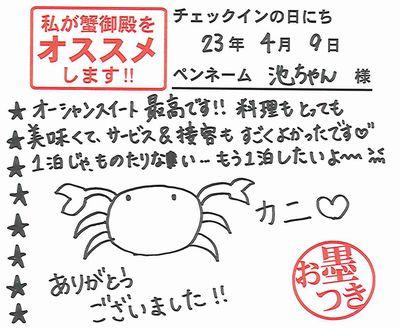 私が蟹御殿を
オススメ
します!!
チェックインの日にち
23年 4月 9日
ペンネーム 池ちゃん 様
★ オーシャンスイート 最高です!! 料理もとっても
★ 美味くて、サービス&接客も すごくよかったです♡
★ 1泊じゃものたりない… もう1泊したいよ〜
★
★
★
★
カニ♡
ありがとう
ございました!!
お墨つき